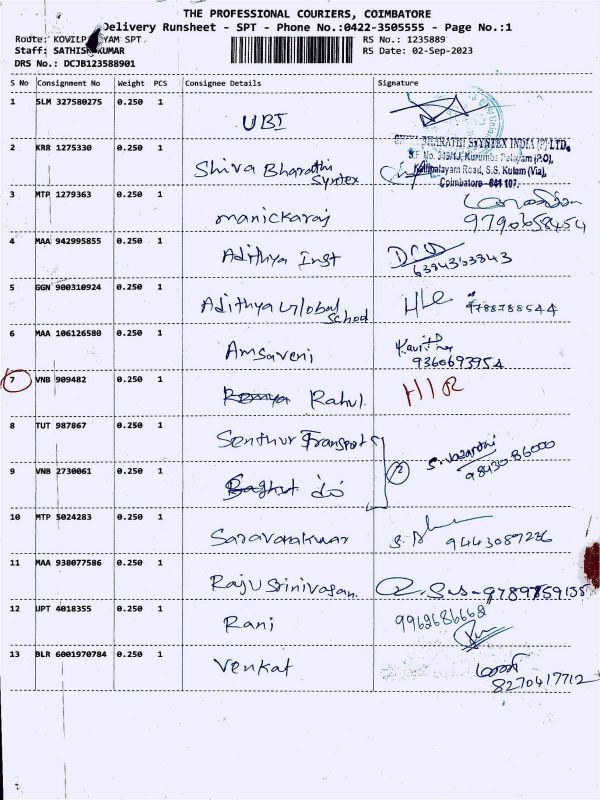 THE PROFESSIONAL COURIERS, COIMBATORE
Delivery Runsheet - SPT - Phone No.:0422-3505555 - Page No.:1
Route: KOVILP YAM SPT
RS No.: 1235889
Staff: SATHISHKUMAR
RS Date: 02-Sep-2023
DRS No.: DCJB123588901
S No Consignment No Weight PCS Consignee Details Signature
1 SLM 327580275 0.250 1 UBI
2 KRR 1275330 0.250 1 Shiva Bharathi Syntex
SHIVA BHARATHI SYNTEX INDIA (P) LTD.
S.F. No. 349/1J, Kurumba Palayam (P.O),
Kalipalayam Road, S.S. Kulam (Via),
Coimbatore - 641 107.
3 MTP 1279363 0.250 1 manickaraj
9790658454
4 MAA 942995855 0.250 1 Adithya Inst
5 GGN 900310924 0.250 1 Adithya Global School
9788788544
6 MAA 106126580 0.250 1 Amsaveni Kavitha
9360693954
7 VNB 909482 0.250 1 Rahul HIR
8 TUT 987867 0.250 1 Senthur Transport
2
98430 86000
9 VNB 2730061 0.250 1 do
10 MTP 5024283 0.250 1 Saravanakumar 9443087236
11 MAA 938077586 0.250 1 Raju Srinivasan 9789759135
12 UPT 4018355 0.250 1 Rani 9962686668
13 BLR 6001970784 0.250 1 Venkat
8270417712